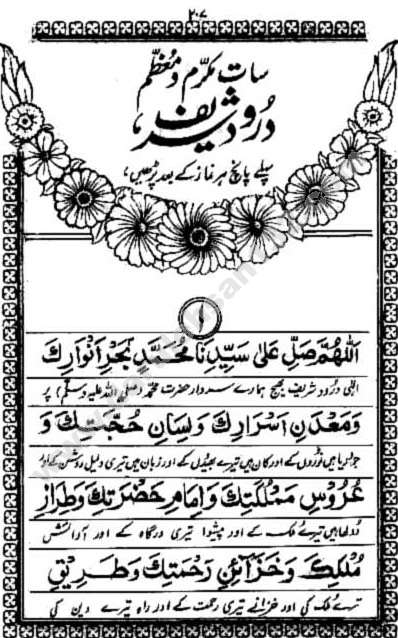 ۲۰۷
سات مکرّم و معظّم
درُود شریف
پہلے پانچ ہر نماز کے بعد پڑھیں،
۱
اَللّٰهُمَّ صَلِّ عَلٰى سَيِّدِنَا مُحَمَّدٍ بَحْرِ اَنْوَارِكَ
الٰہی درُود شریف بھیج ہمارے سردار حضرت محمد (صلی اللہ علیہ وسلم) پر
وَمَعْدَنِ اَسْرَارِكَ وَلِسَانِ حُجَّتِكَ وَ
جو دریا ہیں تیرے نوُروں کے اور کان ہیں تیرے بھیدوں کے اور زبان ہیں تیری دلیل روشن کے اور
عُرُوْسِ مَمْلَكَتِكَ وَاِمَامِ حَضْرَتِكَ وَطِرَازِ
دُولھا ہیں تیرے مُلک کے اور پیشوا تیری درگاہ کے اور آرائش
مُلْكِكَ وَخَزَآئِنِ رَحْمَتِكَ وَطَرِيْقِ
تیرے مُلک کی اور خزانے تیری رحمت کے اور راہ تیرے دین کی